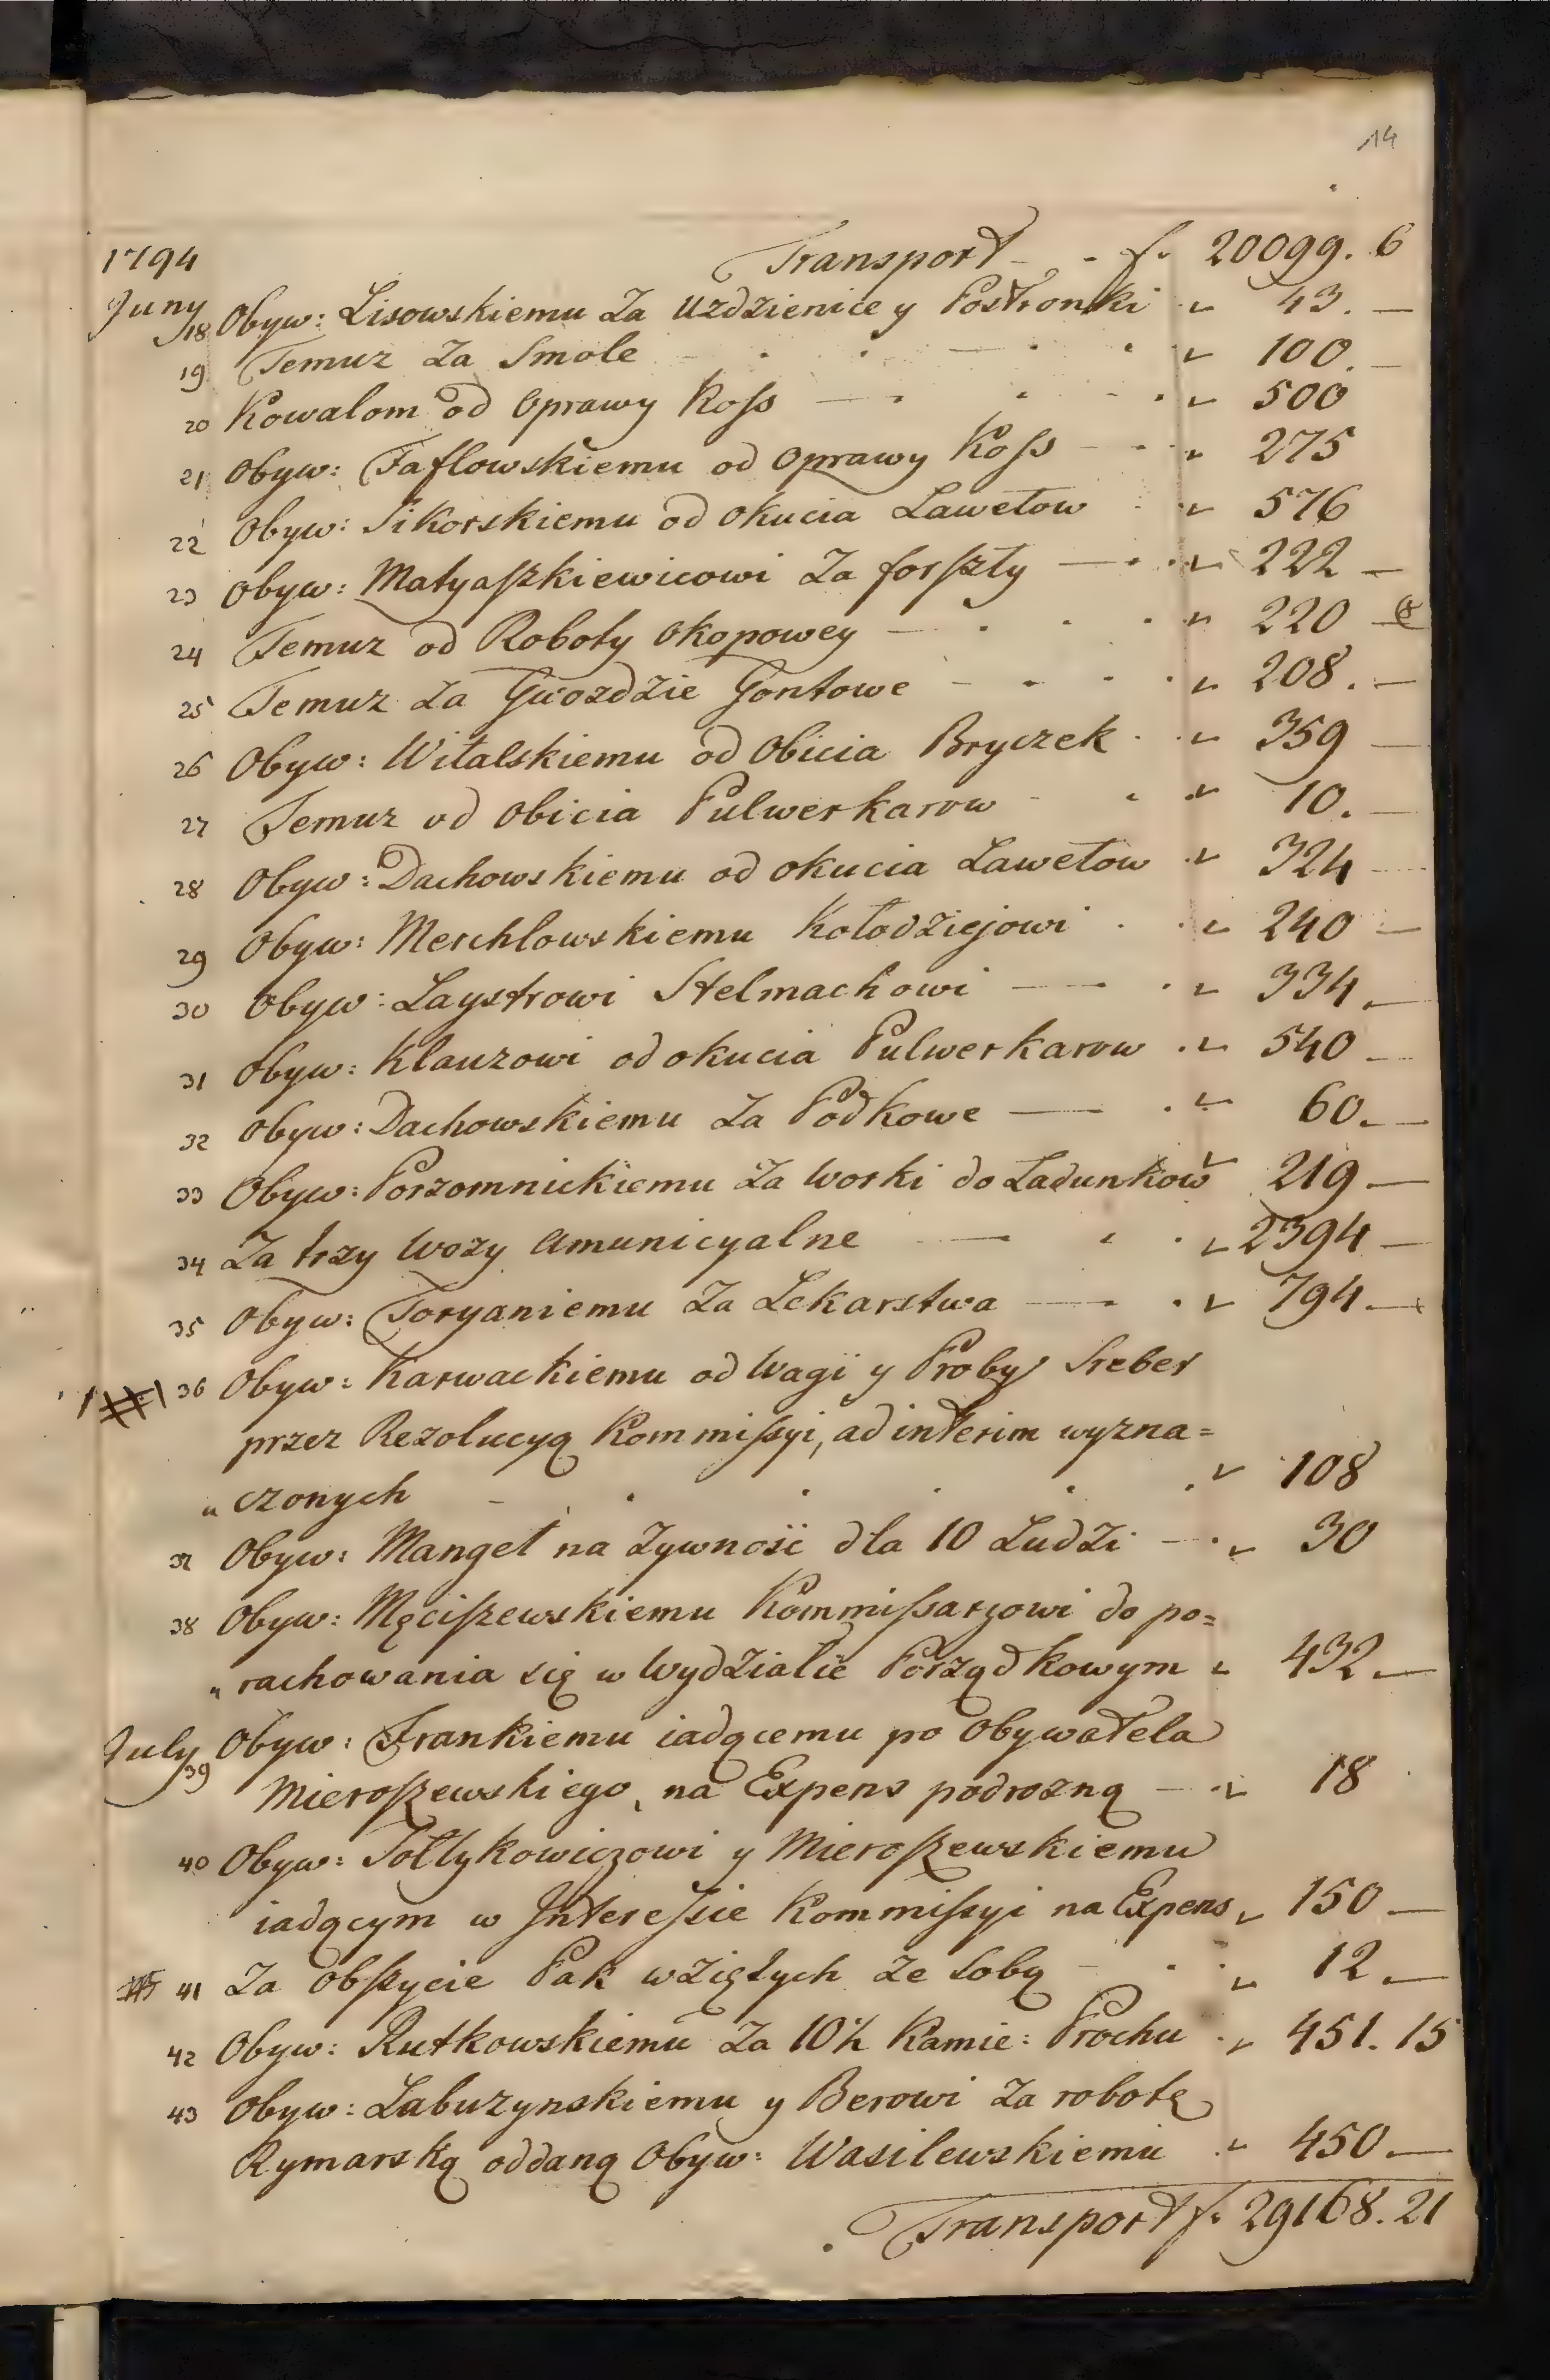 14
1794 Transport - - f. 20099. 6
Juny 18 Obyw: Lisowskiemu Za Uzdzienice y Postronki „ 43. —
19 Temuz Za Smole „ 100. —
20 Kowalom od Oprawy Koss — „ 500
21 Obyw: Taflowskiemu od Oprawy Koss „ 275
22 Obyw: Sikorskiemu od okucia Lawetow „ 576
23 Obyw: Matyaszkiewicowi Za forszty — „ 222 —
24 Temuz od Roboty okopowey — „ 220 —
25 Temuz Za Gwozdzie Gontowe „ 208. —
26 Obyw: Witalskiemu od Obicia Bryczek „ 359 —
27 Temuz od Obicia Pulwerkarow „ 10. —
28 Obyw: Dachowskiemu od okucia Lawetow „ 324 —
29 Obyw: Merchlowskiemu Kołodziejowi „ 240 —
30 Obyw: Laystrowi Stelmachowi — „ 334. —
31 Obyw: Klauzowi od okucia Pulwerkarow „ 540 —
32 Obyw: Dachowskiemu Za Podkowe — „ 60. —
33 Obyw: Porzomnickiemu Za Worki do Ladunkow „ 219 —
34 Za trzy Wozy Amunicyalne — „ 2394 —
35 Obyw: Toryaniemu Za Lekarstwa — „ 794 —
36 Obyw: Karwackiemu od Wagi y Proby Sreber
przez Rezolucyą Kommissyi, ad interim wyzna=
„ czonych „ 108
37 Obyw: Manget na Zywnosc dla 10 Ludzi — „ 30
38 Obyw: Męciszewskiemu Kommissarzowi do po=
„ rachowania się w Wydziale Porządkowym „ 432 —
July 39 Obyw: Frankiemu iadącemu po Obywatela
Mieroszewskiego, na Expens podrozną — „ 18
40 Obyw: Sołtykowiczowi y Mieroszewskiemu
iadącym w Interessie Kommissyi na Expens „ 150 —
41 Za obszycie Pak wziętych ze sobą „ 12 —
42 Obyw: Rutkowskiemu Za 10½ Kamie: Prochu „ 451. 15
43 Obyw: Labuzynskiemu y Berowi Za robotę
Rymarską oddaną Obyw: Wasilewskiemu „ 450 —
Transport f. 29168. 21